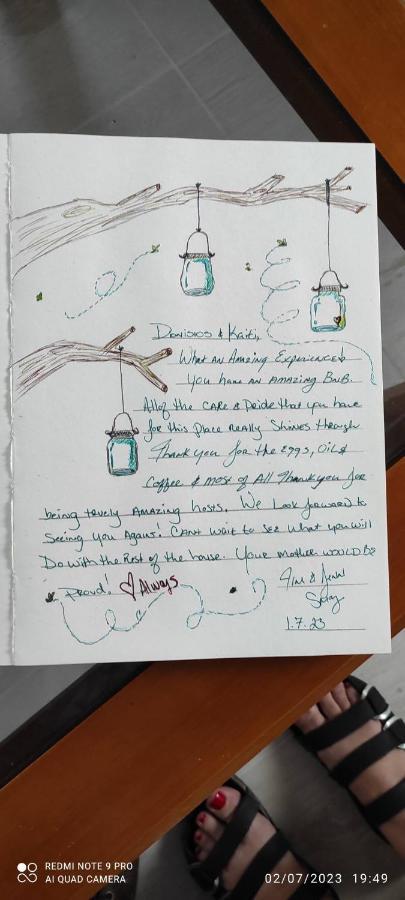 Dionisos & Kaiti,
What an Amazing Experience!
You have an AMAZING BnB.
All of the CARE & Pride that you have
for this Place Really Shines through
Thank you for the eggs, Oil &
Coffee & most of All Thank you for
being truely Amazing hosts. We Look forward to
Seeing you Again! Cant wait to see what you will
Do with the Rest of the house. Your Mother would be
Proud! Always
1.7.23
REDMI NOTE 9 PRO
AI QUAD CAMERA
02/07/2023 19:49